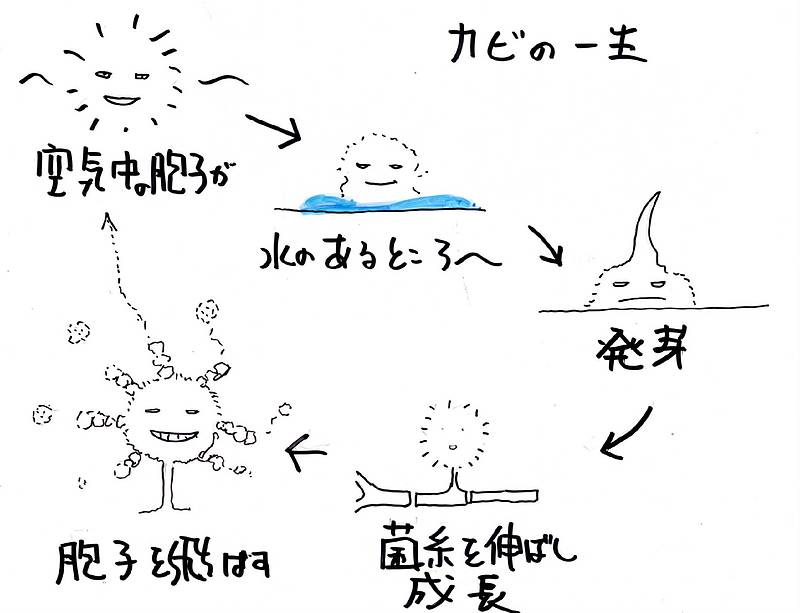 カビの一生
空気中の胞子が
水のあるところへ
発芽
菌糸を伸ばし
成長
胞子を飛ばす